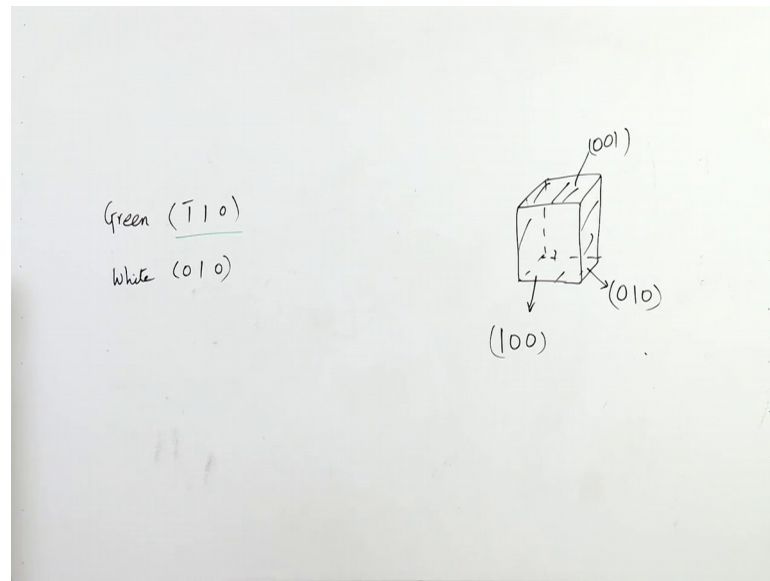 Green (1̅ 1 0)
White (0 1 0)
(001)
(010)
(100)